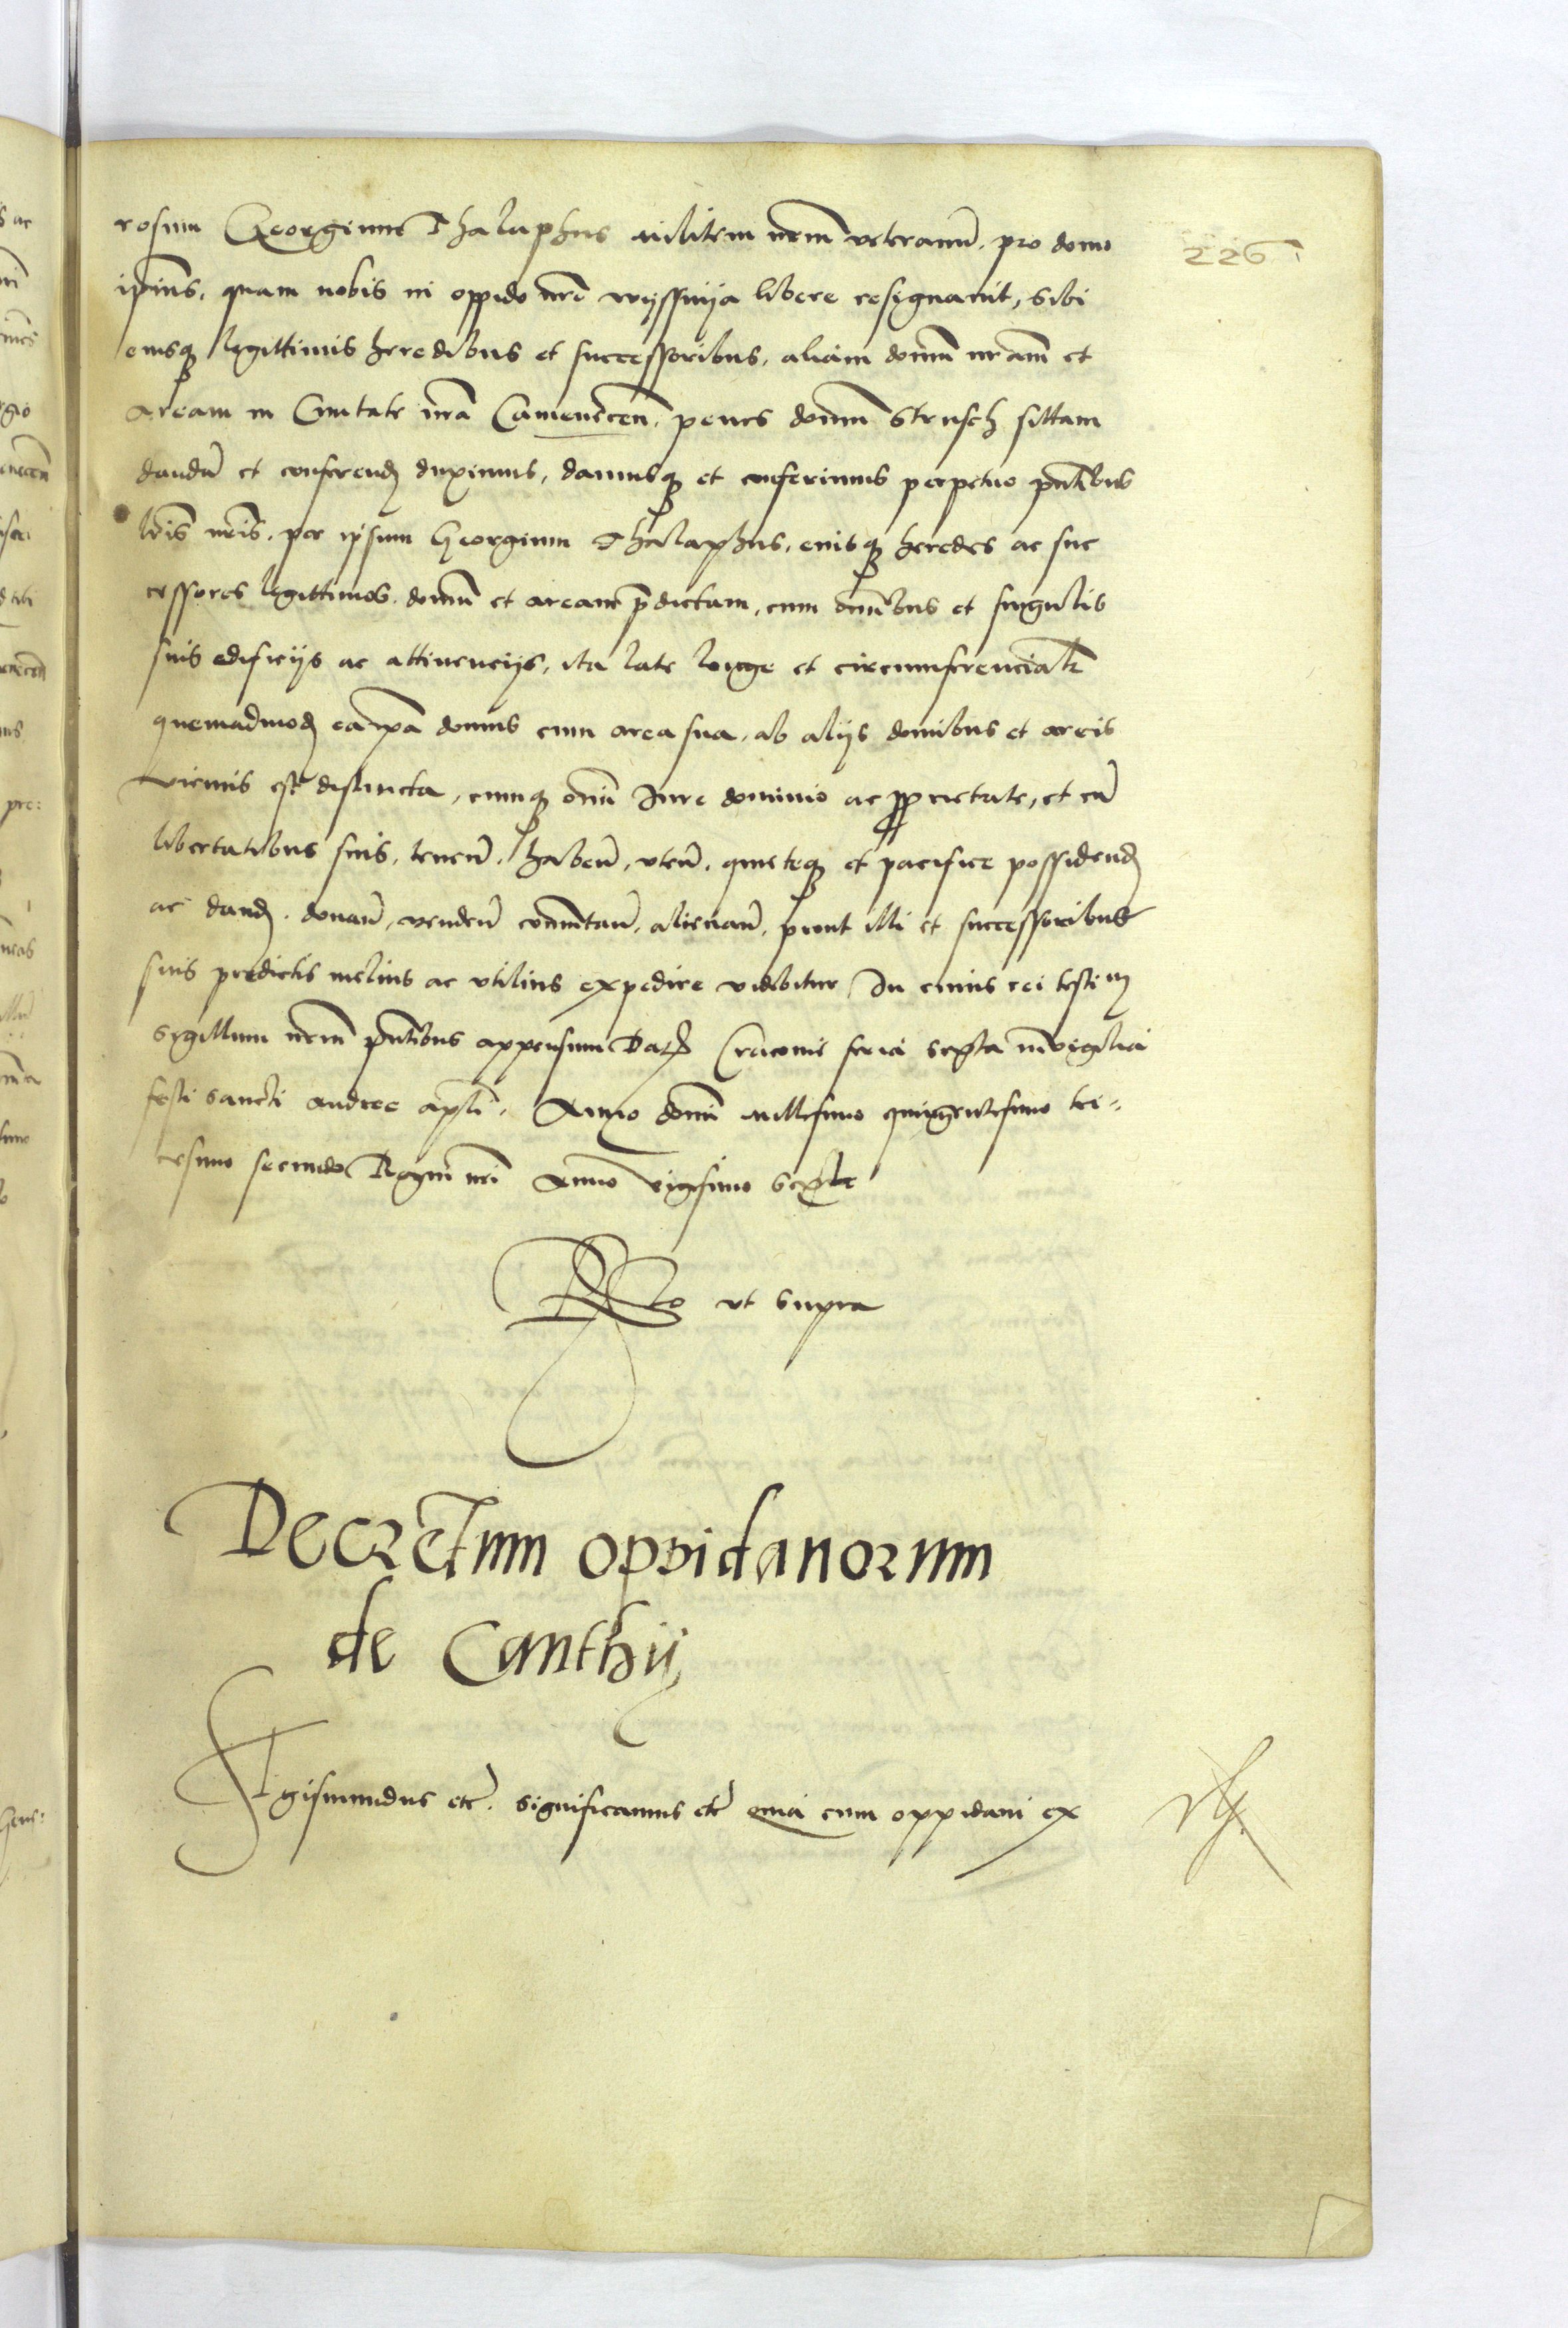 226
rosum Georgium Thalaphus militem nrm veteranu, pro domo
ipius, quam nobis in oppido nro wyssnija libere resignavit, sibi
eiusq legittimis heredibus et successoribus, aliam domu nram et
aream in Civitate nra Camenecen, penes domu Strusch sittam
dandu et conferend duximus, damusq et conferimus perpetuo pntibus
lris nris, per ipsum Georgium Thalaphus, eiusq heredes ac suc
cessores legittimos, domu et aream predictam, cum omibus et singulis
suis edificijs ac attinencijs, ita late longe et circumferencialr
quemadmod ea ipa domus cum area sua, ab alijs domibus et areis
vicinis est distincta, cumq omi Jure dominio ac pprietate, et cu
libertatibus suis, tenen, haben, uten, quieteq et pacifice possidend
ac dand, donan, venden comutan, alienan, prout illi et successoribus
suis predictis melius ac utilius expedire videbitur In cuius rei testim
sigillum nrm pntibus appensum Dat Cracovie feria sexta in vigilia
festi sancti andree apli, Anno domi millesimo quingentesimo tri-
cesimo secundo Regni nri Anno vigesimo sexto
Rlo ut supra
Decretum oppidanorum
de Canthij
Sigismundus etc. significamus etc quia cum oppidani ex